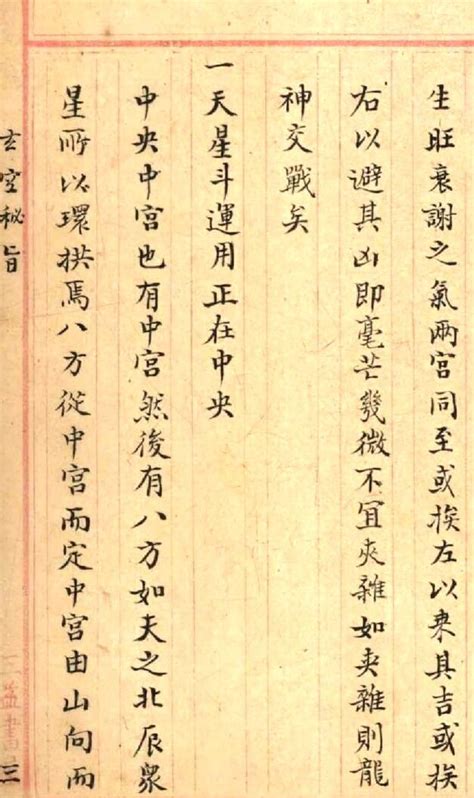 生旺衰謝之氣兩宮同至或挨左以乘其吉或挨
右以避其凶即毫芒幾微不宜夾雜如夾雜則龍
神交戰矣
一天星斗運用正在中央
中央中宮也有中宮然後有八方如天之北辰衆
星所以環拱焉八方從中宮而定中宮由山向而
玄空秘旨
三